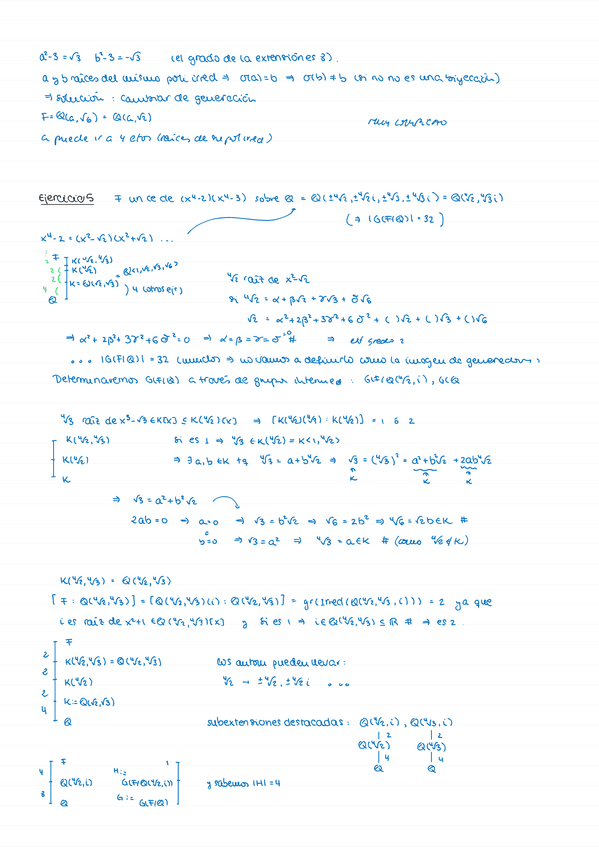 a²-3=√3   b²-3=-√3   (el grado de la extensión es 8).
a y b raíces del mismo poli irred ⇒ σ(a)=b ⇒ σ(b)≠b (si no no es una biyección)
⇒ solución: cambiar de generación
F=Q(a,√6) = Q(a,√2)
MUY COMPLICADO
a puede ir a 4 ctos (raíces de su pol irred)
Ejercicio 5   F un cde de (x⁴-2)(x⁴-3) sobre Q = Q(±⁴√2, ±⁴√2i, ±⁴√3, ±⁴√3i) = Q(⁴√2, ⁴√3, i)
(⇒ |G(F/Q)| = 32)
x⁴-2 = (x²-√2)(x²+√2) ...
F
K(⁴√2,⁴√3)
K(⁴√2)
K=Q(√2,√3) = Q<1,√2,√3,√6>
) 4 (otros ej.)
Q
⁴√2 raíz de x²-√2
si ⁴√2 = α+β√2+γ√3+δ√6
√2 = α²+2β²+3γ²+6δ²+( )√2+( )√3+( )√6
⇒ α²+2β²+3γ²+6δ²=0 ⇒ α=β=γ=δ=0 # ⇒ ext grado 2
... |G(F/Q)|=32 (mucho) ⇒ no vamos a definirlo como la imagen de generadores
Determinaremos G(F/Q) a través de grupos intermed: G(F/Q(⁴√2,i)),
⁴√3 raíz de x²-√3 ∈ K[x] ≤ K(⁴√2)[x] ⇒ [K(⁴√2)(⁴√3) : K(⁴√2)] = 1 ó 2
K(⁴√2,⁴√3)
K(⁴√2)
K
Si es 1 ⇒ ⁴√3 ∈ K(⁴√2) = K<1,⁴√2>
⇒ ∃ a,b ∈ K tq ⁴√3 = a+b⁴√2 ⇒ √3 = (⁴√3)² = a²+b²√2 + 2ab⁴√2
K   K   K
⇒ √3 = a²+b²√2
2ab=0 ⇒ a=0 ⇒ √3 = b²√2 ⇒ √6 = 2b² ⇒ ⁴√6 = √2b ∈ K #
ó
b=0 ⇒ √3 = a² ⇒ ⁴√3 = a ∈ K # (como ⁴√2 ∉ K)
K(⁴√2,⁴√3) = Q(⁴√2,⁴√3)
[F : Q(⁴√2,⁴√3)] = [Q(⁴√2,⁴√3)(i) : Q(⁴√2,⁴√3)] = gr(Irred(Q(⁴√2,⁴√3,i))) = 2 ya que
i es raíz de x²+1 ∈ Q(⁴√2,⁴√3)[x] y si es 1 ⇒ i ∈ Q(⁴√2,⁴√3) ≤ R # ⇒ es 2.
F
2 K(⁴√2,⁴√3) = Q(⁴√2,⁴√3)
2 K(⁴√2)
2 K:=Q(√2,√3)
4 Q
los autom pueden llevar:
⁴√2 → ±⁴√2, ±⁴√2i ...
subextensiones destacadas: Q(⁴√2,i), Q(⁴√3,i)
| 2   | 2
Q(⁴√2)   Q(⁴√3)
| 4   | 4
Q   Q
F   1
4   H:=
Q(⁴√2,i)   G(F/Q(⁴√2,i))   y sabemos |H|=4
8   G:=
Q   G(F/Q)